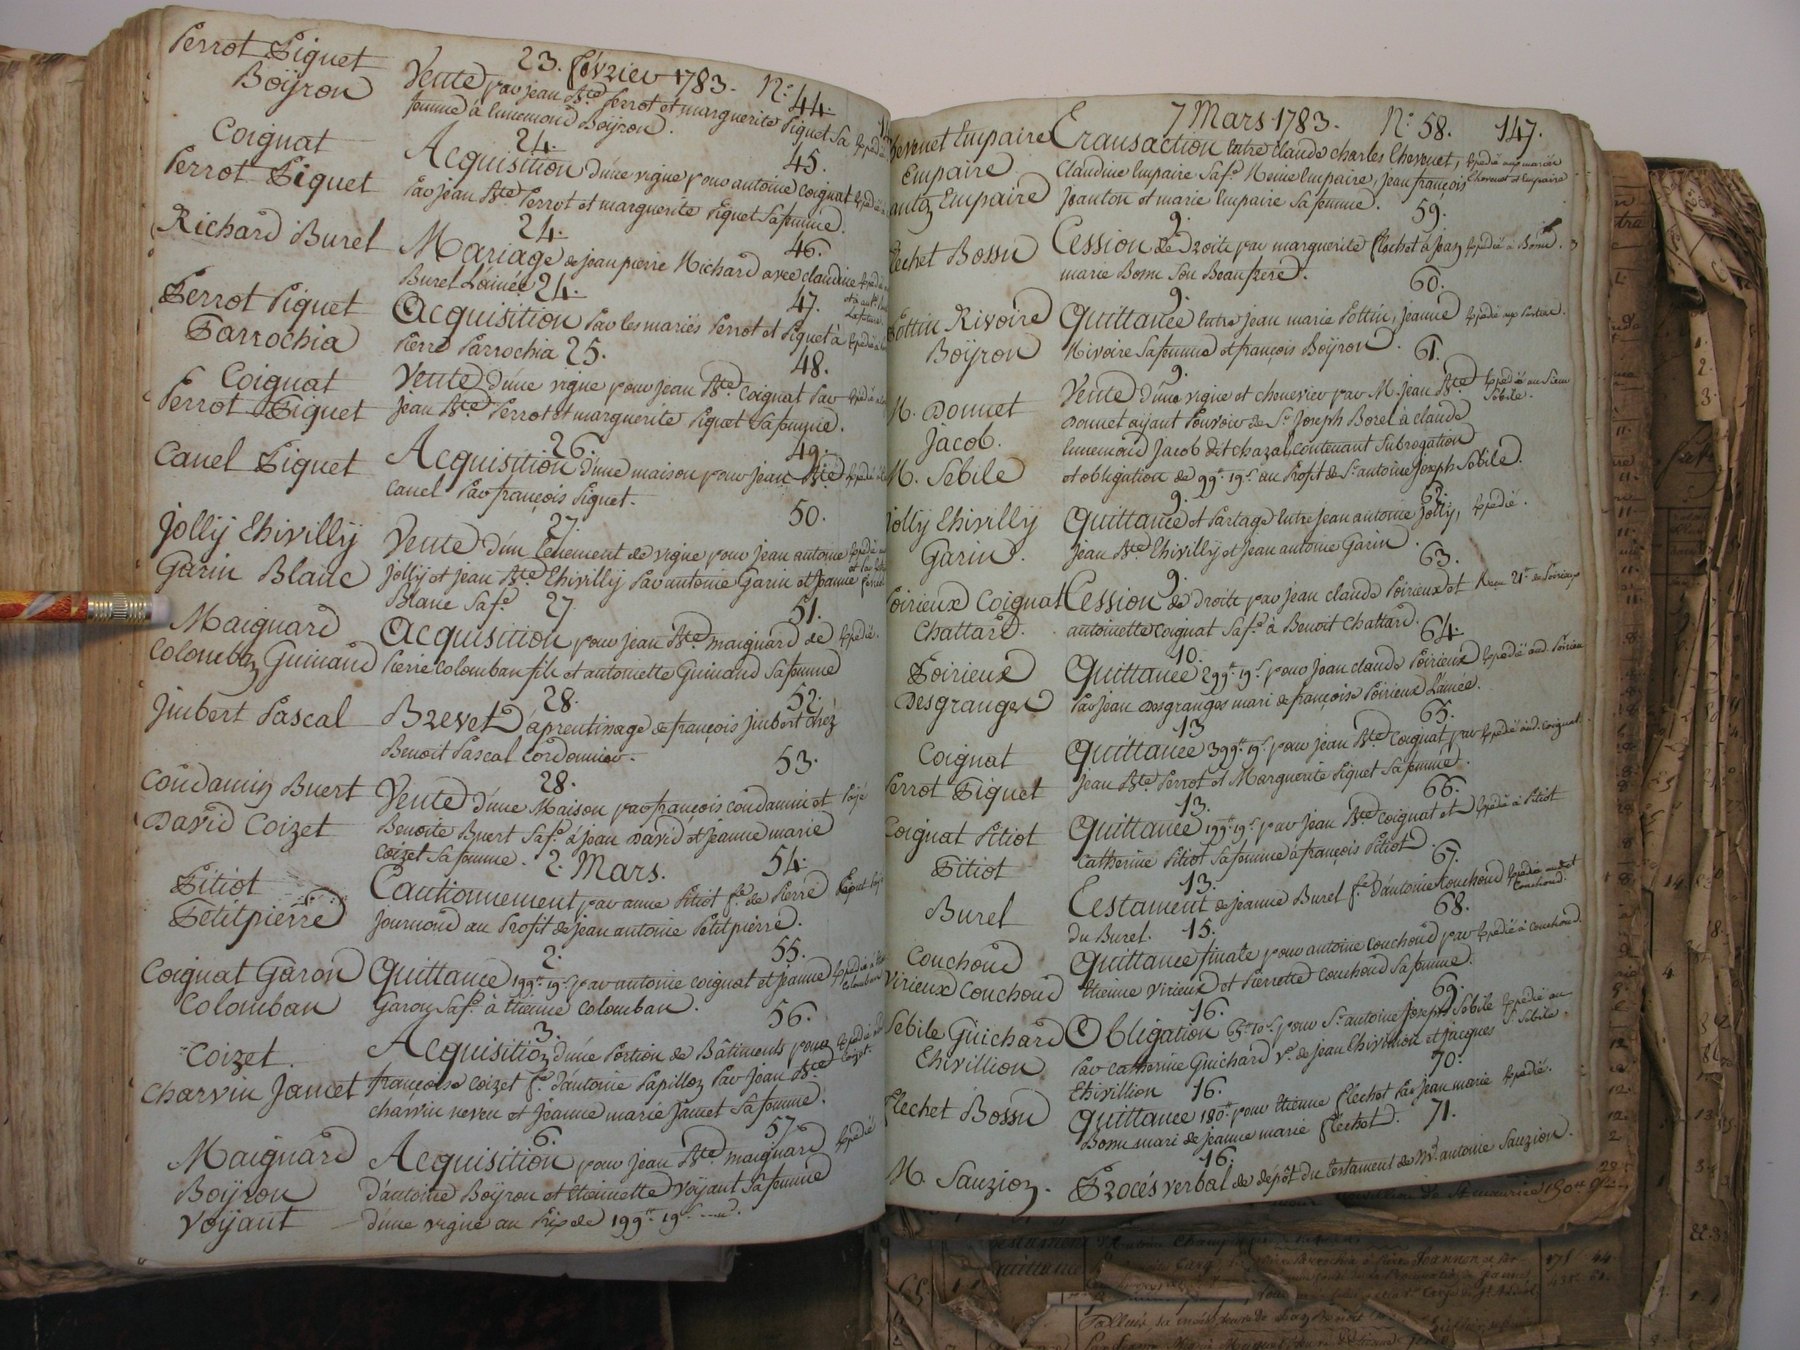 23. février 1783. N.° 44.
Perrot Piguet
Boÿron
Vente par jean Bte. Perrot et marguerite Piguet Sa
femme à Ennemond Boÿron.
24. 45.
Coignat
Perrot Piguet
Acquisition d'une vigne pour antoine Coignat
Par jean Bte. Perrot et marguerite Piguet Sa femme.
24. 46.
Richard Burel
Mariage de jean pierre Richard avec claudine
Burel L'ainée
24. 47.
Perrot Piguet
Parrochia
Acquisition Par les mariés Perrot et Piguet à
Pierre Parrochia
25. 48.
Coignat
Perrot Piguet
Vente d'une vigne pour jean Bte. Coignat Par
jean Bte. Perrot et marguerite Piguet Sa femme.
26. 49.
Canel Piguet
Acquisition d'une maison pour jean Bte
Canel Par françois Piguet.
27. 50.
Jolly Thivilly
Garin Blanc
Vente d'un tenement de vigne pour jean antoine
jolly et jean Bte. Thivilly Par antoine Garin et jeanne
Blanc Sa fe.
27 51.
Maignard
Colomban Guinand
Acquisition pour jean Bte. maignard de Expedié.
Pierre Colomban fils et antoinette Guinand Sa femme
28. 52.
Jmbert Pascal
Brevet d'aprentissage de françois jmbert chéz
Benoit Pascal Cordonnier.
28. 53.
Condamin Buert
David Coizet
Vente d'une Maison par françois condamin et Payé
Benoite Buert Sa fe. à jean David et jeanne marie
Coizet Sa femme.
2. Mars. 54.
Pitiot
Petitpierre
Cautionnement par anne Pitiot fe. de Pierre
journoud au Profit de jean antoine Petitpierre.
2. 55.
Coignat Garon
Colomban
Quittance 199.tt 19.s par antoine coignat et jeanne
Garon Sa fe. à Etienne Colomban.
3. 56.
Coizet
Charvin Jamet
Acquisition d'une Portion de Bâtiments pour
françoise Coizet fe. d'antoine Papillon Par jean Bte
charvin neveu et jeanne marie Jamet Sa femme.
6. 57
Maignard
Boÿron
Voÿant
Acquisition pour jean Bte. maignard Expedié
d'antoine Boÿron et Etiennette voÿant Sa femme
d'une vigne au Prix de 199.tt 19.s
7 Mars 1783. N.° 58. 147.
Chevenet Empaire
Empaire
Janton Empaire
Transaction Entre claude charles Chevenet, Expedié aux mariés
Claudine Empaire Sa fe. Reine Empaire, jean françois Chevenet et Empaire
Jeanton et marie Empaire Sa femme.
9. 59.
Flechet Bossu
Cession de Droits par marguerite Flechet à jean Expedié à Bossu.
marie Bossu Son Beaufrere.
9. 60.
Pottin Rivoire
Boÿron
Quittance Entre jean marie Pottin, jeanne
Rivoire Sa femme et françois Boÿron.
9. 61.
M. Donnet
Jacob.
M. Sebile
Vente d'une vigne et chenevier par M. jean Bte Expedié au Sieur
Donnet aÿant Pouvoir de Sr. Joseph Borel à claude Sebile.
Ennemond Jacob dit chazal, Contenant Subrogation
et obligation de 99.tt 19.s au Profit de Sr. antoine joseph Sebile.
9. 62.
Jolly Thivilly
Garin.
Quittance et Partage Entre jean antoine jolly, Expedié.
jean Bte. Thivilly et jean antoine Garin.
9. 63.
Poirieux Coignat
Chattard.
Cession de Droits par jean claude Poirieux et
antoinette Coignat Sa fe. à Benoit Chattard.
10. 64.
Poirieux
Desgranges
Quittance 299.tt 19.s pour jean claude Poirieux Expedié aud. Poirieux
Par jean Desgranges mari de françoise Poirieux L'ainée.
13 65.
Coignat
Perrot Piguet
Quittance 399.tt 19.s pour jean Bte. Coignat par Expedié aud. Coignat.
jean Bte. Perrot et Marguerite Piguet Sa femme.
13. 66.
Coignat Pitiot
Pitiot
Quittance 199.tt 19.s par jean Bte. Coignat et Expedié à Pitiot
Catherine Pitiot Sa femme à françois Pitiot.
13. 67.
Burel
Testament de jeanne Burel fe. d'antoine Couchoud
du Burel. Couchoud.
15. 68.
Couchoud
Virieux Couchoud
Quittance finale pour antoine Couchoud par Expedié à Couchoud.
Etienne Virieux et Pierrette Couchoud Sa femme.
16. 69.
Sebile Guichard
Thivillion
Obligation pour Sr. antoine Joseph Sebile Expedié au
Par Catherine Guichard ve. de jean Thivillion et Jacques Sr. Sebile
Thivillion
16. 70.
Flechet Bossu
Quittance 180.tt pour Etienne Flechet Par jean marie Expedié.
Bossu mari de jeanne marie Flechet.
16. 71.
M. Sauzion.
Procés verbal de dépôt du testament de Mr. antoine Sauzion.